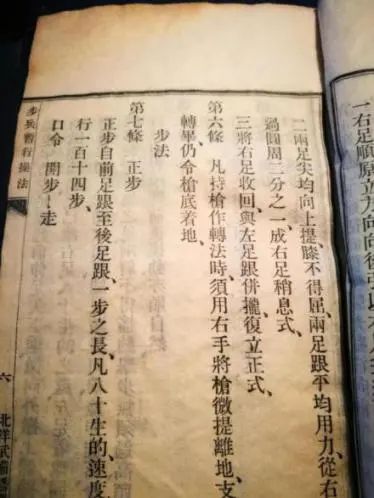 一右足順原立方向向後
二兩足尖均向上提膝不得屈、兩足跟平均用力、從右
過圓周三分之一、成右足稍息式、
三將右足收回、與左足跟併攏、復立正式、
第六條 凡持槍作轉法時須用右手將槍微提離地、支
轉畢仍令槍底着地、
步法
第七條 正步
正步自前足跟至後足跟、一步之長、凡八十生的、速度
行一百十四步、
口令 開步ー走
步兵暫行操法 六 北洋武備